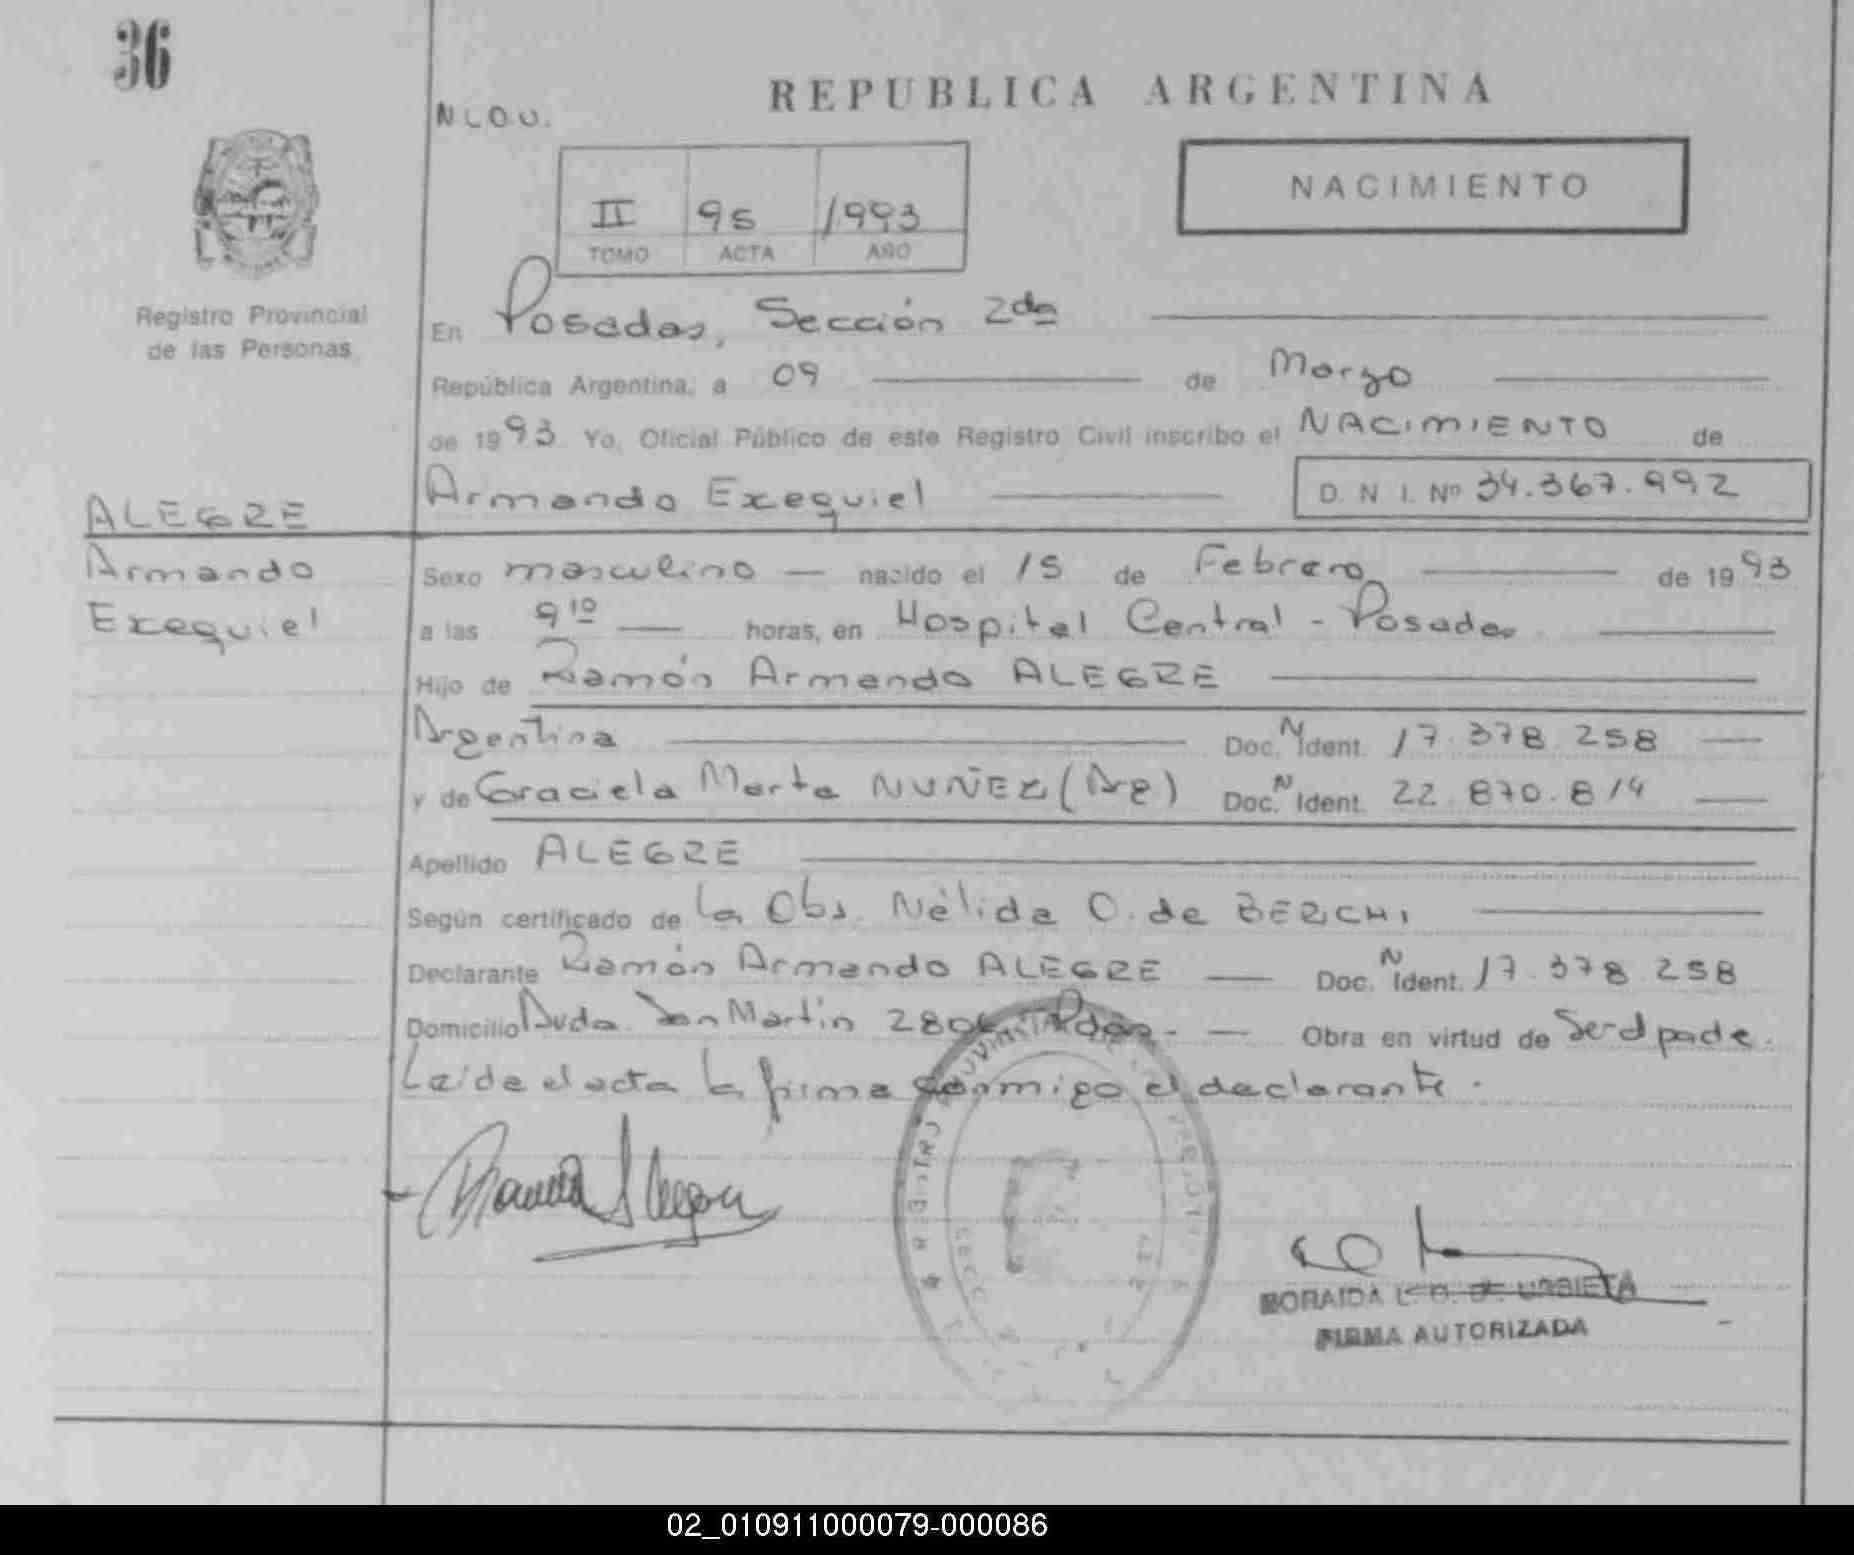 36
N L O.U.
REPUBLICA ARGENTINA
NACIMIENTO
II 95 1993
TOMO ACTA AÑO
Registro Provincial
de las Personas
En Posadas, Sección 2da
República Argentina, a 09 de Marzo
de 1993 Yo, Oficial Público de este Registro Civil inscribo el NACIMIENTO de
Armando Exequiel D. N. I. Nº 34.367.992
ALEGRE
Armando
Exequiel
Sexo masculino nacido el 15 de Febrero de 1993
a las 9 10 horas, en Hospital Central - Posadas
Hijo de Ramón Armando ALEGRE
Argentina Doc. N Ident. 17.378.258
y de Graciela Marta NUÑEZ (Arg) Doc. N Ident. 22.870.814
Apellido ALEGRE
Según certificado de la Obs. Nélida O. de BERCHI
Declarante Ramón Armando ALEGRE Doc. N Ident. 17.378.258
Domicilio Avda. San Martín 2806 Pdas. Obra en virtud de Ser el padre.
Leída el acta la firma conmigo el declarante.
REGISTRO PROVINCIAL DE LAS PERSONAS
ZORAIDA L. O. de URBIETA
FIRMA AUTORIZADA
02_010911000079-000086